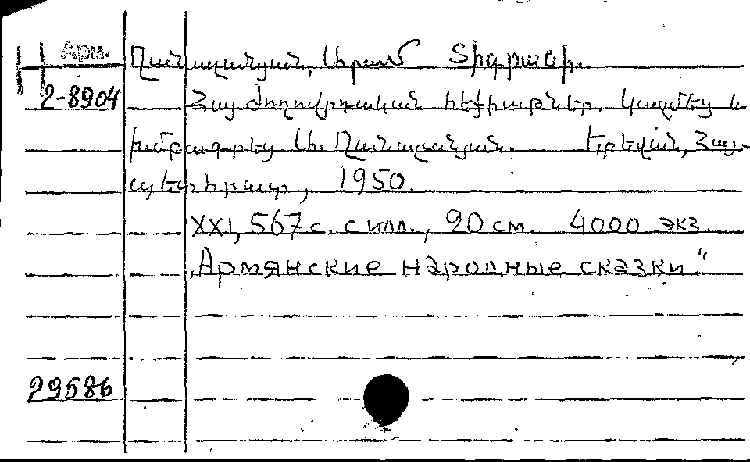 Арм.
Ղանալանյան, Արամ Տիգրանի.
2-8904 Հայ ժողովրդական հեքիաթներ. Կազմեց և
խմբագրեց Ա. Ղանալանյան. Երևան, Հայ-
պետհրատ, 1950.
XXI, 567 с. с илл., 20 см. 4000 экз
„Армянские народные сказки“
29586